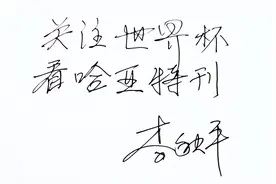 关注世界杯
看哈亚特刊
李